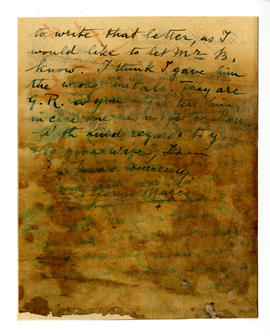 to write that letter, as I
would like to let Mr B.
know. I think I gave him
the wrong initials. They are
G. R. so you might
in case one has
With kind regards to you
your wife, I am
Yours sincerely,